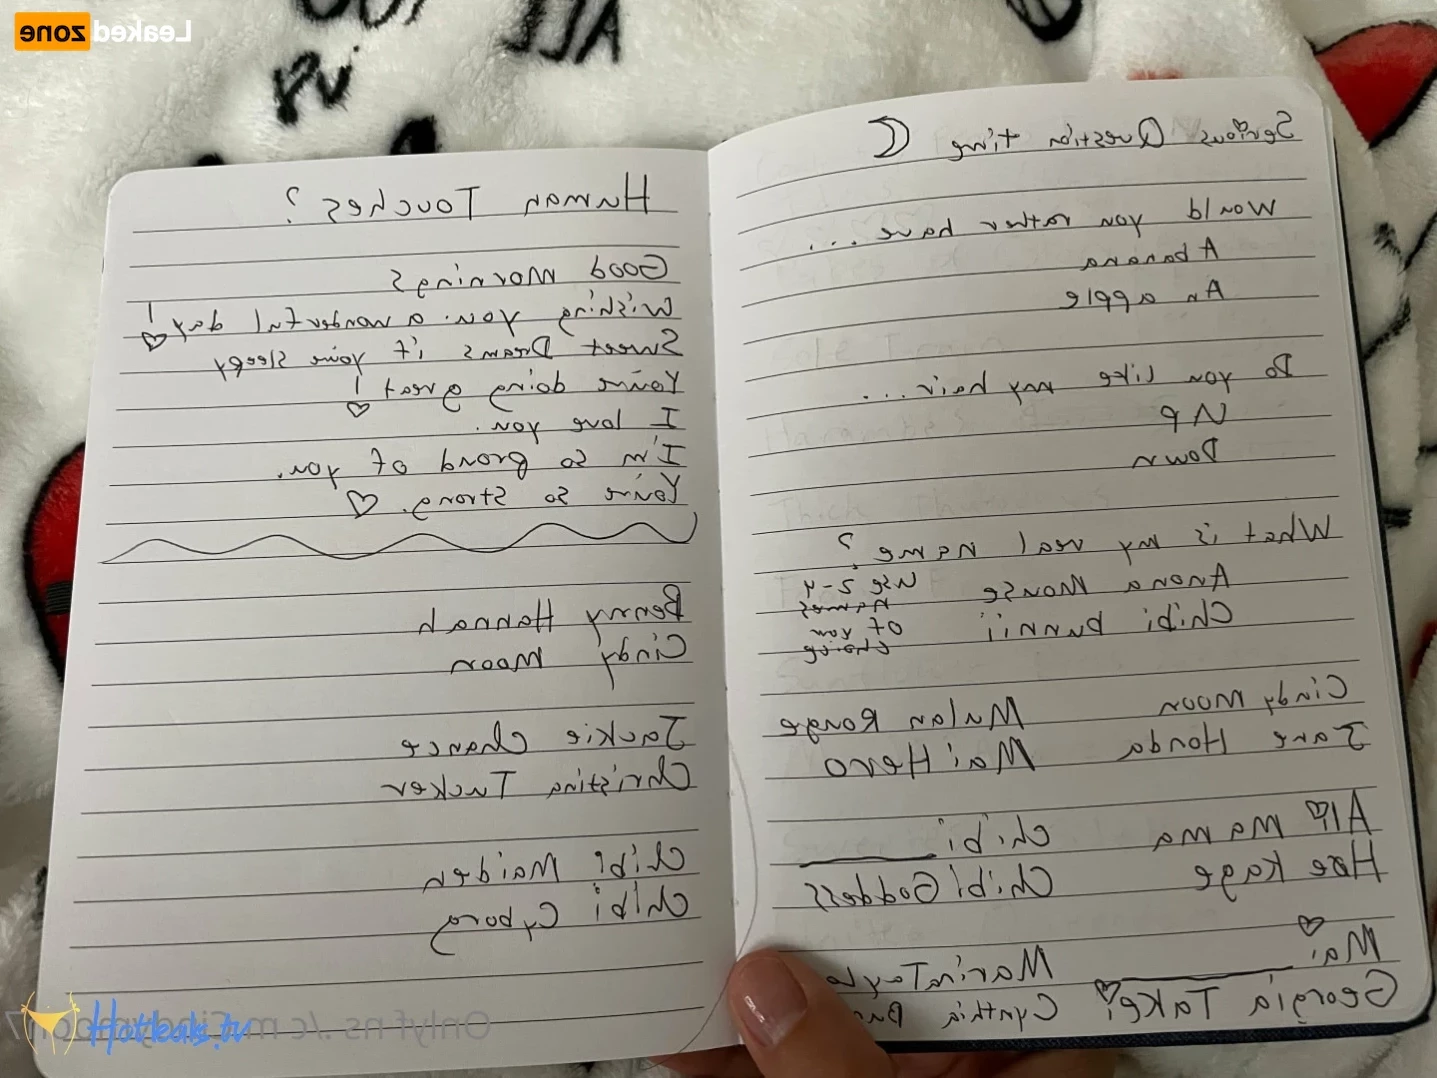 Leaked zone
ALL
Serious Question time
Would you rather have ...
A banana
An apple
Do you like my hair ...
Up
Down
What is my real name?
Anona Mouse
Chibi bunnii
Use 2-4
Names
Of your
choice
Cindy Moon
Jane Honda
Mulan Rouge
Mai Hero
Alli Mama
Hoe Kage
Chibi
Chibi Goddess
Mai
Georgia Take
Cynthia
Human Touches?
Good Mornings
Wishing you a wonderful day!
Sweet Dreams if your sleepy
Your doing great!
I love you.
I'm so proud of you.
Your so strong.
Benny Hannah
Cindy Moon
Jackie Chance
Christina Tucker
Chibi Maiden
Chibi Cyborg
Hotleaks.tv